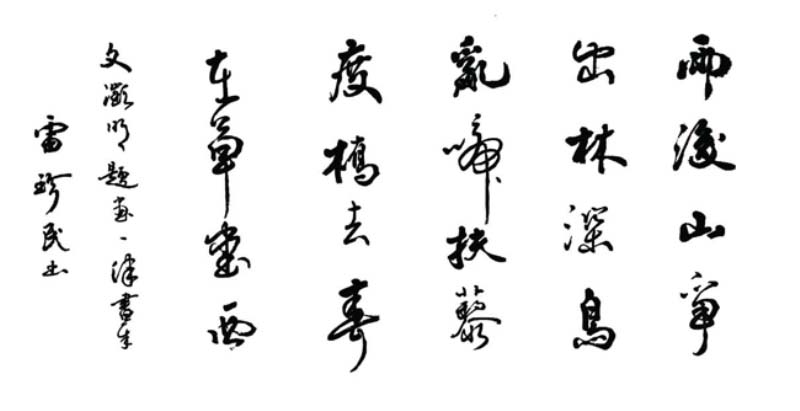 雨後山爭
出林深鳥
亂啼扶藜
度橋去春
在草堂西
文徵明題畫一律書
雷珍民書